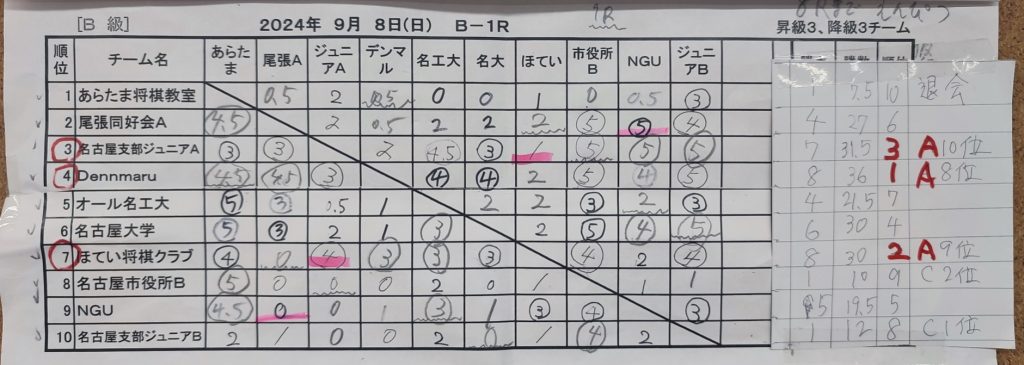 [B 級] 2024年 9月 8日(日) B－1R 1R
昇級3、降級3チーム
順位 チーム名 あらたま 尾張A ジュニアA デンマル 名工大 名大 ほてい 市役所B NGU ジュニアB
1 あらたま将棋教室 0.5 2 0.5 0 0 1 0 0.5 ③ 1 7.5 10 退会
2 尾張同好会A 4.5 2 0.5 2 2 2 ⑤ ⑤ ④ 4 27 6
3 名古屋支部ジュニアA ③ ③ 2 4.5 ③ 1 ⑤ ⑤ ⑤ 7 31.5 3 A10位
4 Dennmaru 4.5 4.5 ③ ④ ④ 2 ⑤ ④ ⑤ 8 36 1 A8位
5 オール名工大 ⑤ ③ 0.5 1 2 2 ③ 2 ③ 4 21.5 7
6 名古屋大学 ⑤ ③ 2 1 ③ 2 ⑤ ④ ⑤ 6 30 4
7 ほてい将棋クラブ ④ 0 ④ ③ ③ ③ ④ 2 ④ 8 30 2 A9位
8 名古屋市役所B ⑤ 0 0 0 2 0 1 1 1 1 10 9 C2位
9 NGU 4.5 0 0 1 ③ 1 ③ ④ ③ 5 19.5 5
10 名古屋支部ジュニアB 2 1 0 0 2 0 1 ④ 2 1 12 8 C1位